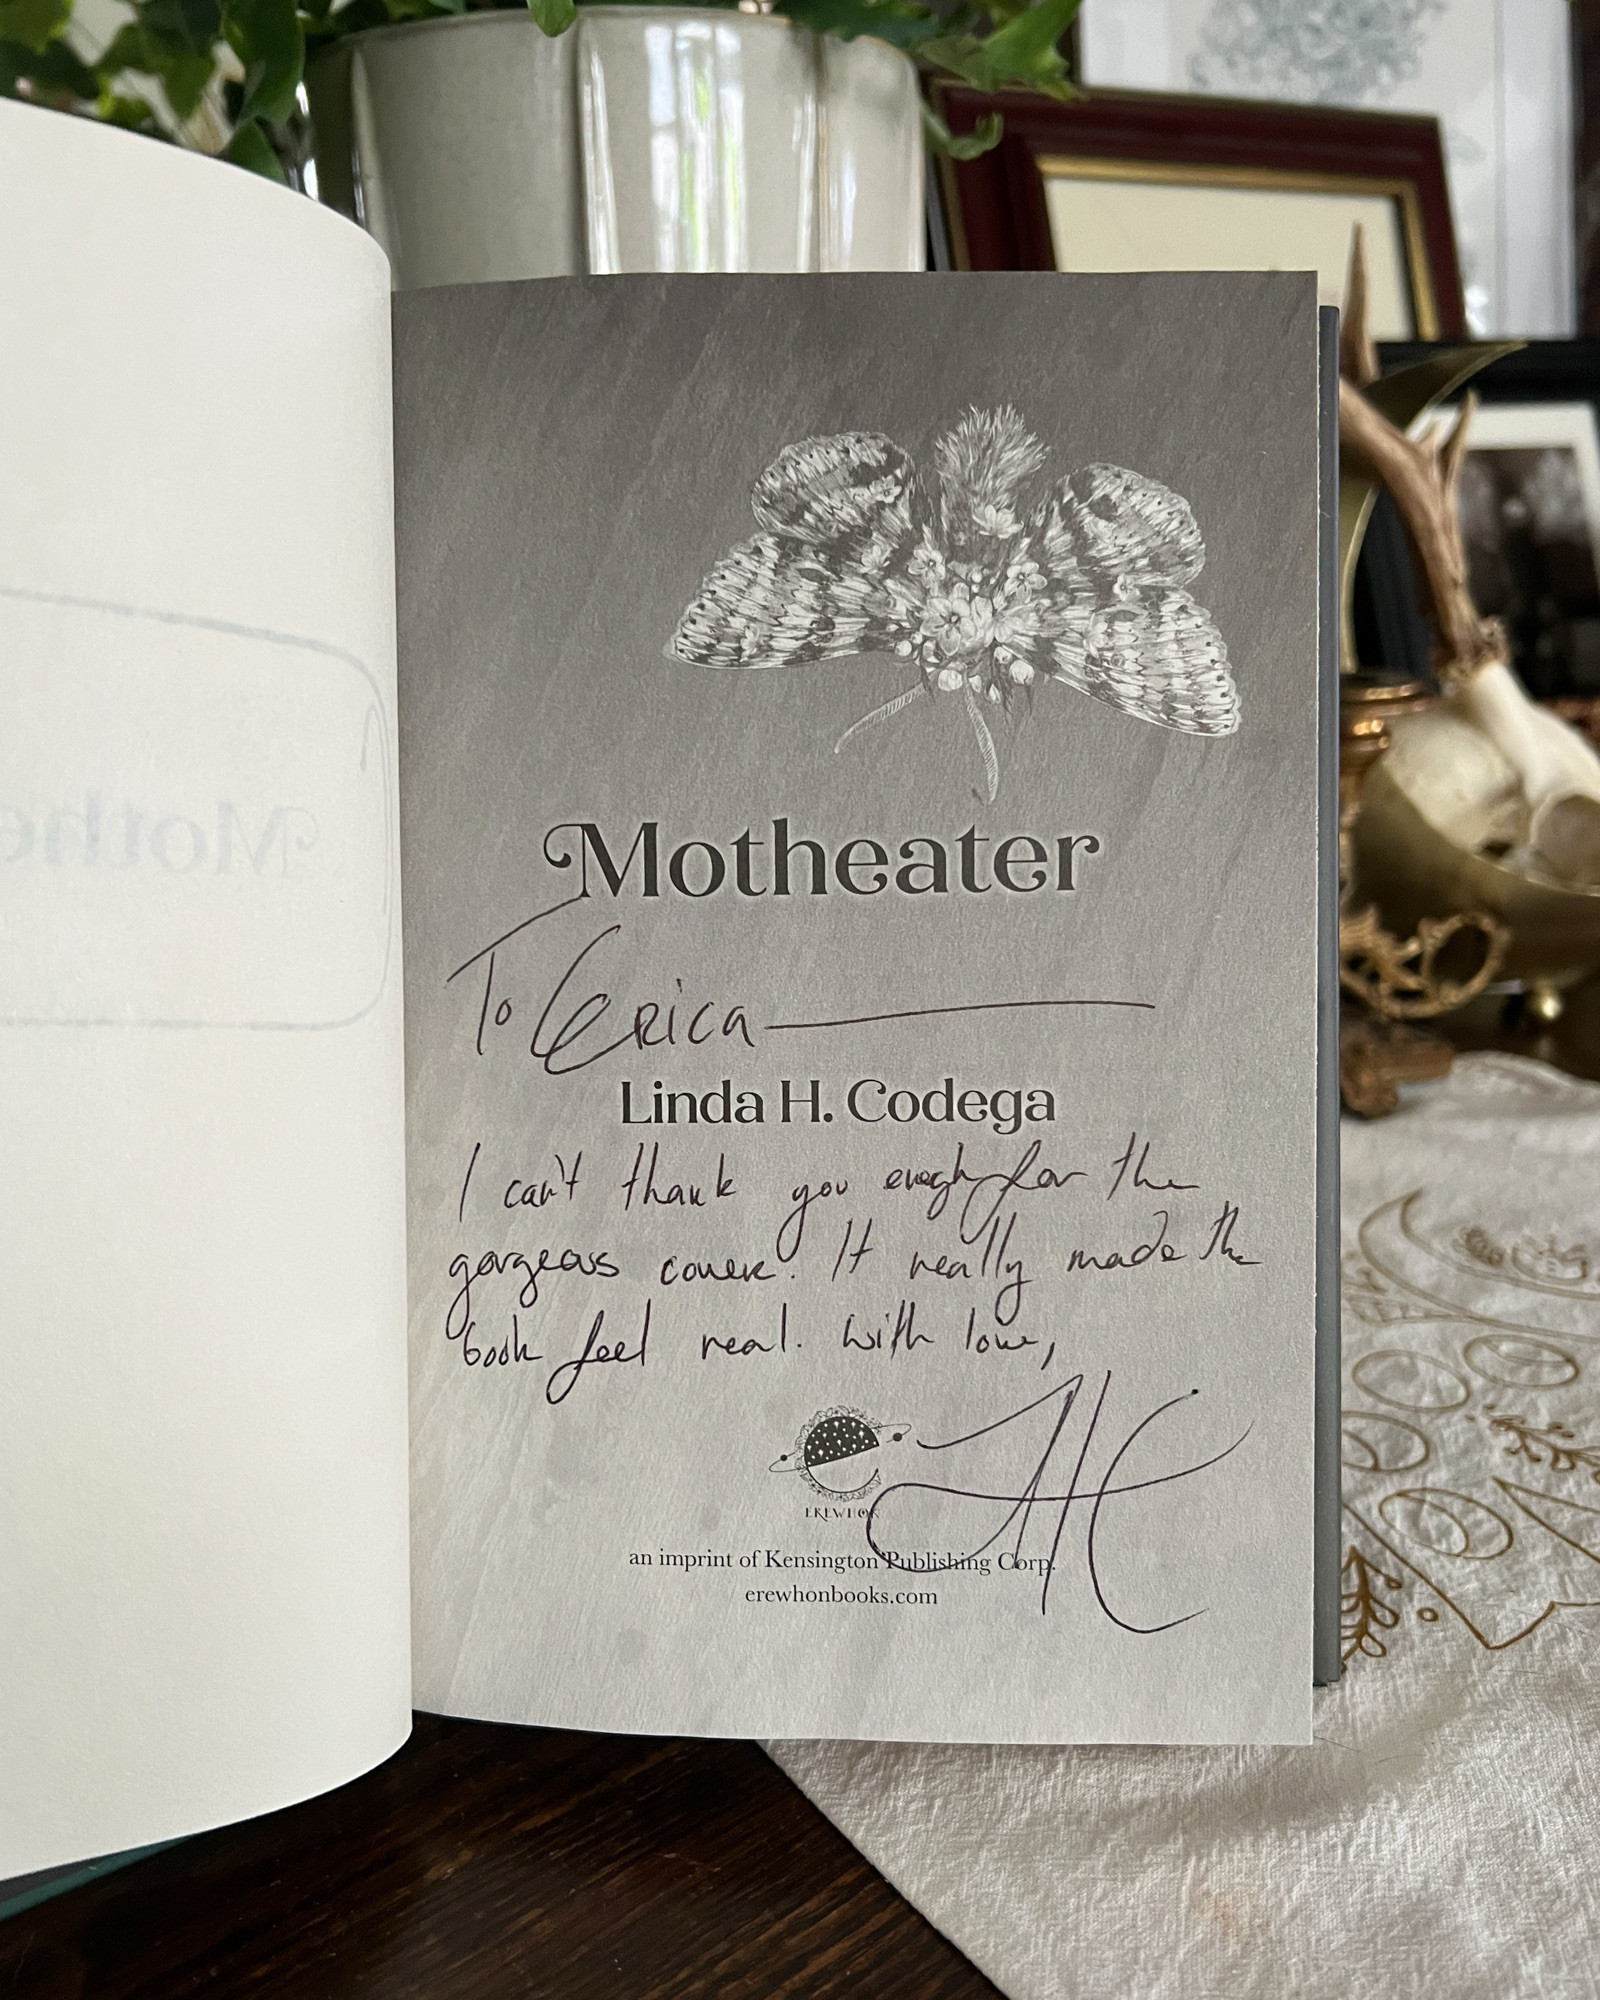 Mothe
Motheater
To Erica
Linda H. Codega
I can't thank you enough for the
gorgeous cover. It really made the
book feel real. With love,
LHC
EREWHON
an imprint of Kensington Publishing Corp.
erewhonbooks.com